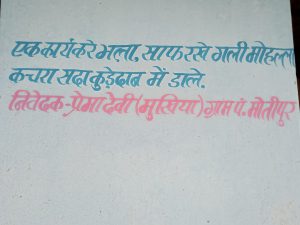 एक कार्य करे भला, साफ रखे गली मोहल्ला
कचरा सदा कुड़ेदान में डाले.
निवेदक-प्रेमा देवी (मुखिया) ग्राम पं. मोतीपुर